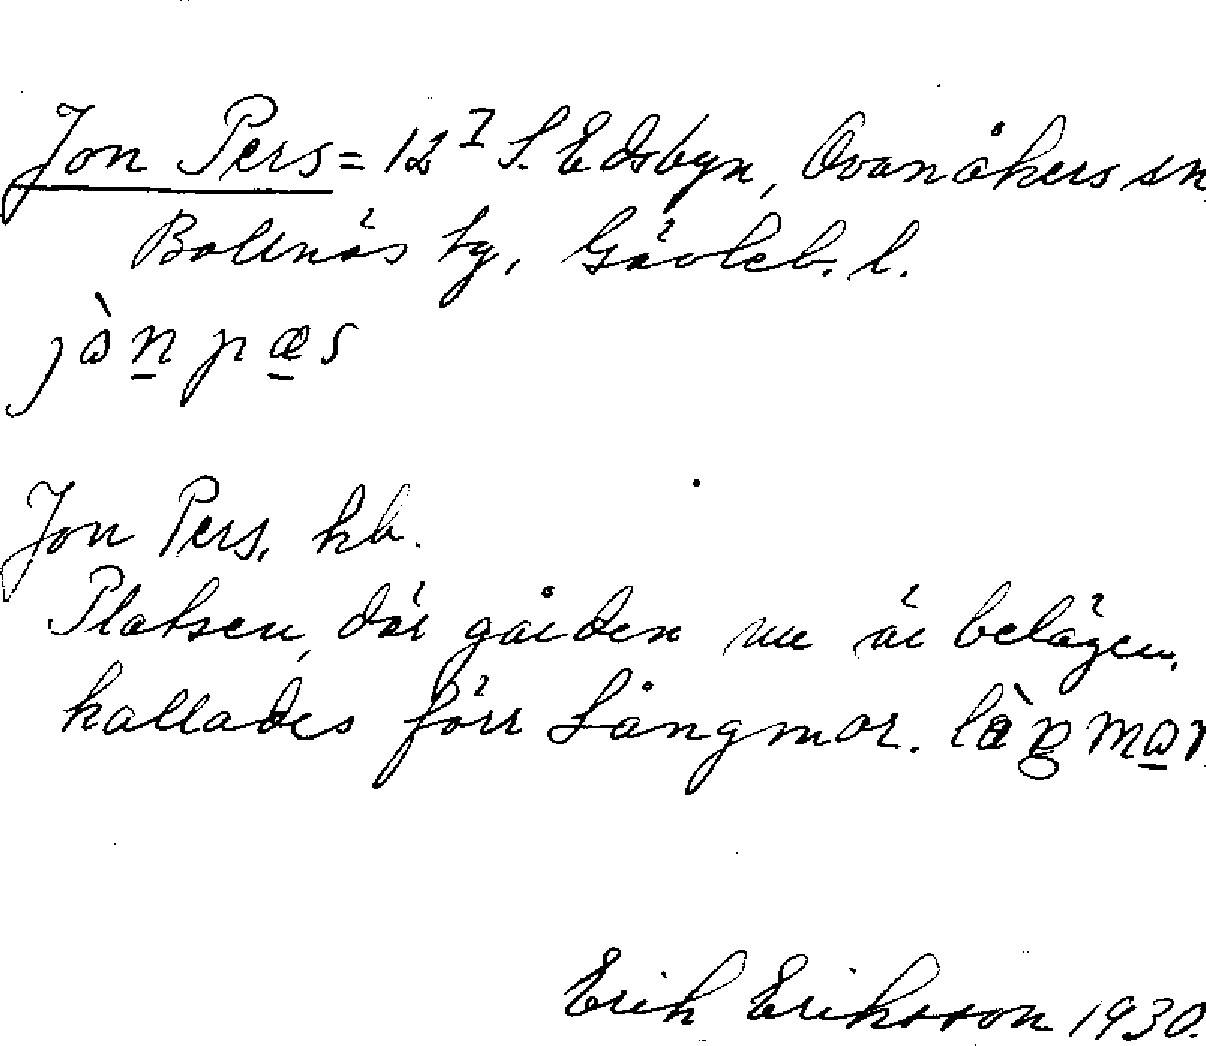 Jon Pers = 12 I S. Edsbyn, Ovanåkers sn
Bollnäs tg, Gävleb. l.
jòn pæs
Jon Pers, hb.
Platsen, där gården nu är belägen,
kallades förr Långmor. làŋmor
Erik Eriksson 1930.